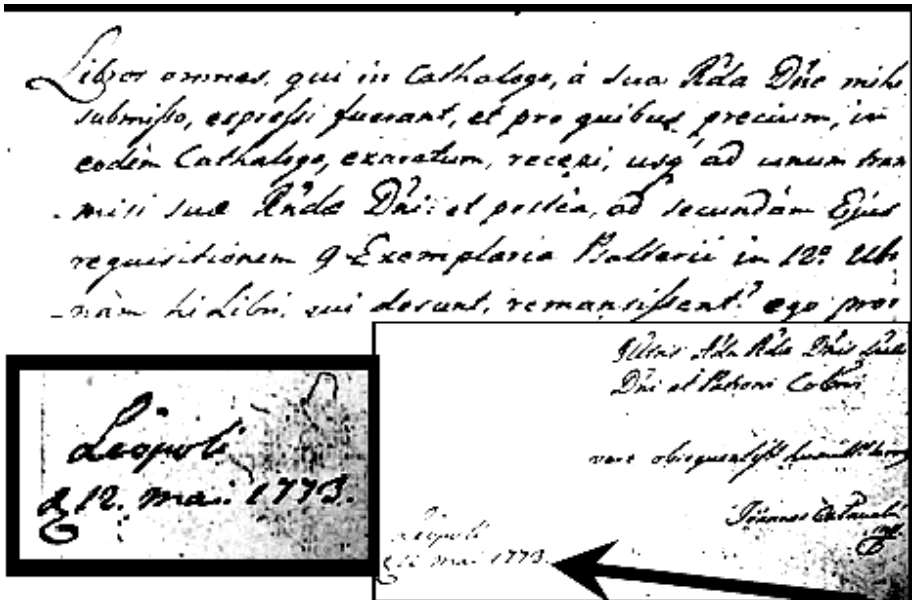 Libros omnes, qui in Cathalogo, à sua Rda Dne mihi
submisso, expressi fuerant, et pro quibus precium, in
eodem Cathalogo, exaratum, recepi, usq ad unum tran
misi suae Rndae Dni: et postea, ad secundam Ejus
requisitionem 9 Exemplaria Psalterii in 12º Uti
nam hi Libri, qui desunt, remansissent! ego
Rda Dnis
Dni et Patroni
Leopoli
12. mai. 1773.
Joannes
Leopoli
12 mai 1773.